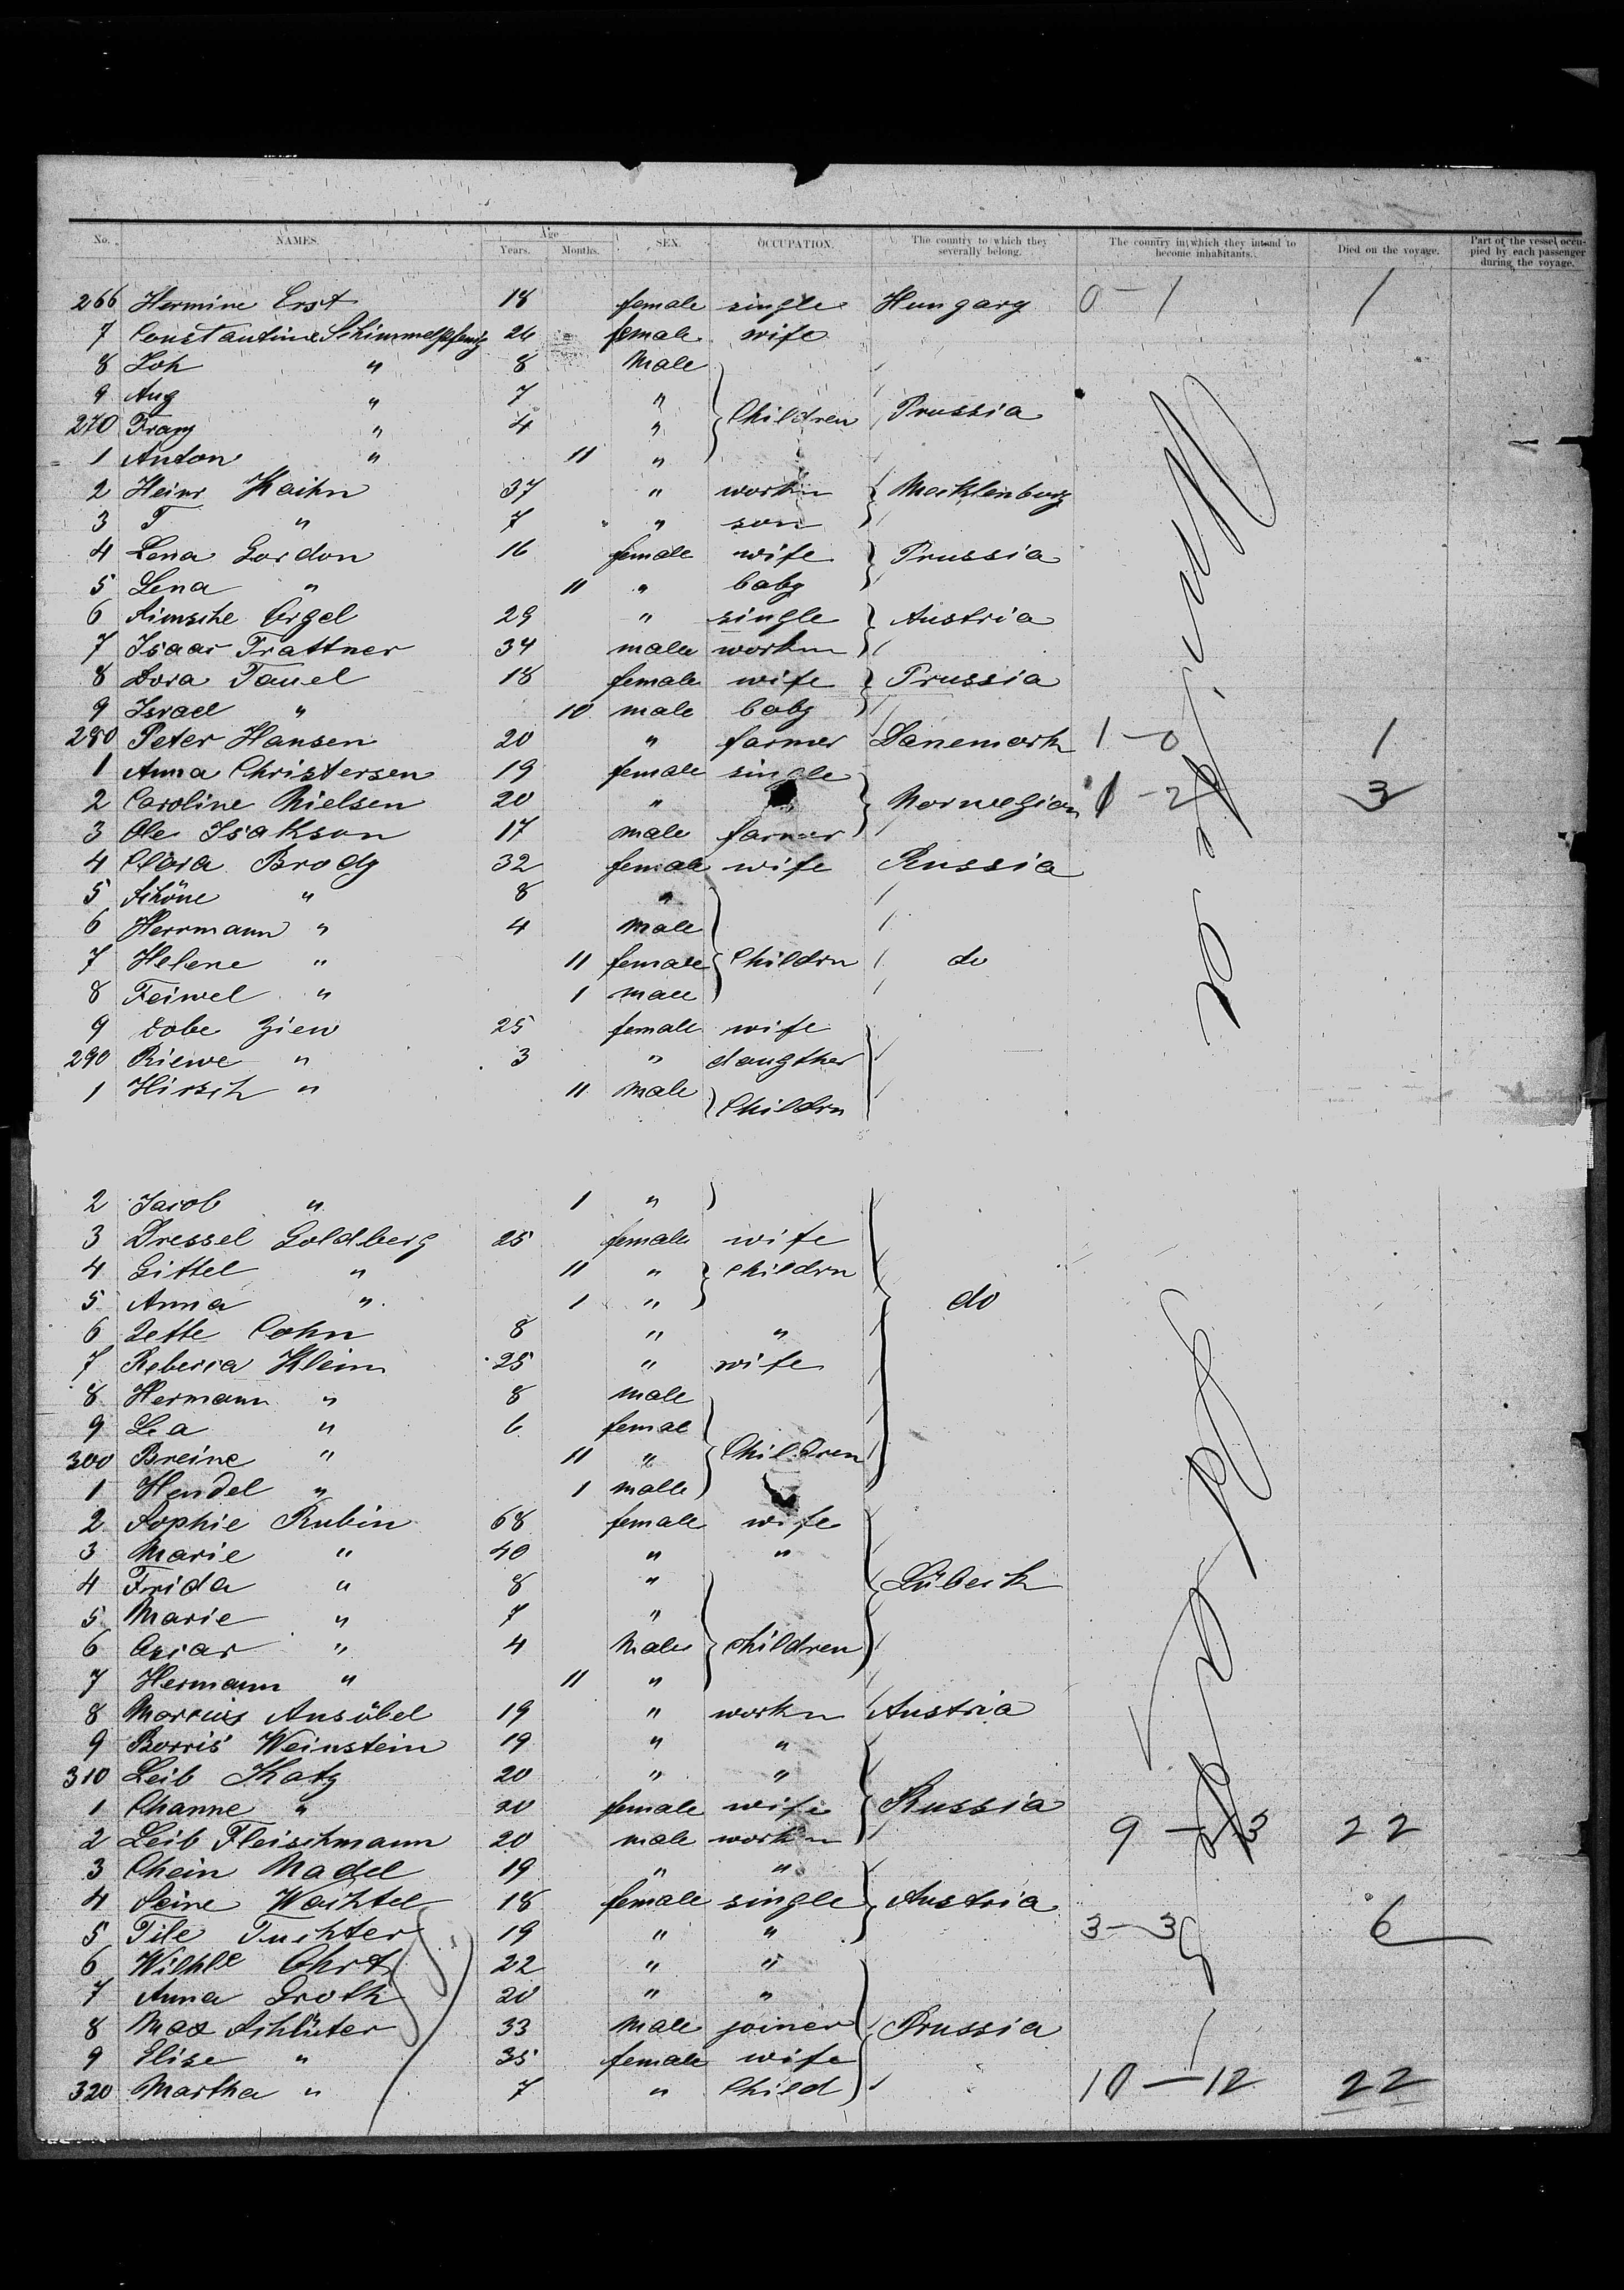 No. NAMES. Age Years. Months. SEX. OCCUPATION. The country to which they severally belong. The country in which they intend to become inhabitants. Died on the voyage. Part of the vessel occupied by each passenger during the voyage.
266 Hermine Erst 18 female single Hungary 0-1 1
7 Constantine Schimmelpfenig 26 female wife
8 Joh " 8 Male
9 Aug " 7 "
270 Franz " 4 " Children Prussia
1 Anton " 11 "
2 Heinr Kaihn 37 " workm Mecklenburg
3 F " 7 " son
4 Lena Gordon 16 female wife Prussia
5 Lena " 11 " baby
6 Simsche Orgel 29 " single Austria
7 Isaac Trattner 34 male workm
8 Dora Tauel 18 female wife Prussia
9 Israel " 10 male baby
280 Peter Hansen 20 " farmer Danemark 1-0 1
1 Anna Christersen 19 female single
2 Caroline Nielsen 20 " Norwegian 1-2 3
3 Ole Isakson 17 male farmer
4 Clara Brody 32 female wife Russia
5 Schöne " 8 "
6 Herrmann " 4 Male
7 Helene " 11 female Childrn do
8 Feiwel " 1 male
9 Dobe Ziew 25 female wife
290 Riewe " 3 " daugther
1 Hirsch " 11 Male Childrn
2 Jacob " 1 "
3 Dressel Goldberg 25 female wife
4 Gittel " 11 " childrn
5 Anna " 1 " do
6 Zette Cohn 8 " "
7 Rebecca Klein 25 " wife
8 Hermann " 8 male
9 Lea " 6 femal
300 Breine " 11 " Children
1 Hendel " 1 malle
2 Sophie Rubin 68 female wife
3 Marie " 40 " "
4 Frida " 8 " Lübeck
5 Marie " 7 "
6 Oscar " 4 Male children
7 Hermann " 11 "
8 Marcus Ansübel 19 " workm Austria
9 Borris Weinstein 19 " "
310 Leib Katz 20 " "
1 Channe " 20 female wife Russia
2 Leib Fleischmann 20 male workm 9-13 22
3 Chein Nadel 19 " "
4 Seine Wachtel 18 female single Austria
5 Tile Tuchter 19 " " 3-3 6
6 Wilhle Ohrt 22 " "
7 Anna Groth 20 " "
8 Max Schlüter 33 Male joiner Prussia
9 Elise " 35 female wife
320 Martha " 7 " Child 10-12 22